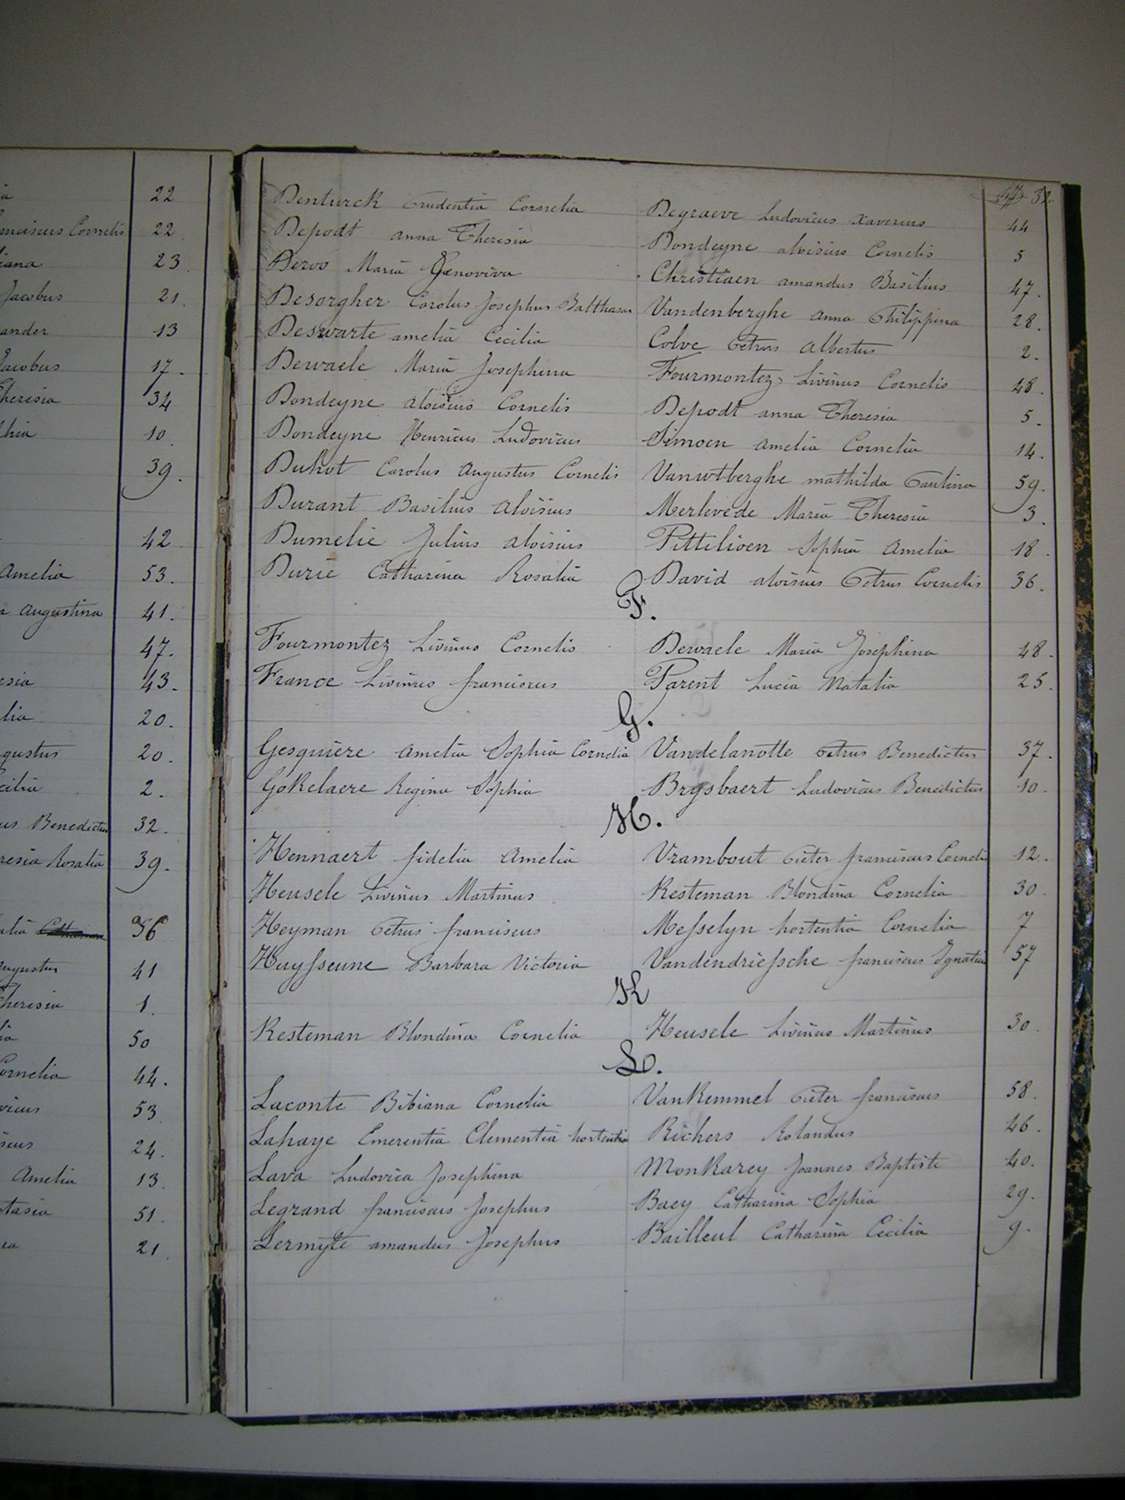 22
nciscus Cornelis 22
iana 23
Jacobus 21
ander 13
Jacobus 17.
Theresia 34
phia 10
39.
42
Amelia 53.
Augustina 41.
47.
esia 43.
lia 20.
gustus 20.
cilia 2.
us Benedictus 32.
resia Rosalia 39.
alia 36
Augustus 41
Theresia 1.
50
Cornelia 44.
vicus 53
iscus 24.
Amelia 13.
stasia 51.
21.
32
Denturck Prudentia Cornelia Degraeve Ludovicus Xaverius 44
Depodt anna Theresia Dondeyne aloisius Cornelis 5
Deroo Maria Genoviva Christiaen amandus Basilius 47.
Desorgher Carolus Josephus Balthasar Vandenberghe anna Philippina 28.
Deswarte amelia Cecilia Colve Petrus Albertus 2.
Dewaele Maria Josephina Fourmontez Livinus Cornelis 48.
Dondeyne aloisius Cornelis Depodt anna Theresia 5.
Dondeyne Henricus Ludovicus Simoen Amelia Cornelia 14.
Duhot Carolus Augustus Cornelis Vanwtberghe mathilda Paulina 59.
Durant Basilius Aloisius Merlevede Maria Theresia 3.
Dumelie Julius aloisius Pittilioen Sophia Amelia 18.
Durie Catharina Rosalia David aloisius Petrus Cornelis 36.
F.
Fourmontez Livinus Cornelis Dewaele Maria Josephina 48.
France Livinus franciscus Parent Lucia Natalia 25.
G.
Gesquiere Amelia Sophia Cornelia Vandelanotte Petrus Benedictus 37.
Gokelaere Regina Sophia Brysbaert Ludovicus Benedictus 10.
H.
Hennaert fidelia Amelia Vrambout Pieter franciscus Corneli 12.
Heusele Livinus Martinus Kesteman Blondina Cornelia 30.
Heyman Petrus franciscus Messelyn hortentia Cornelia 7
Huysseune Barbara Victoria Vandendriessche franciscus Ignatius 57
K
Kesteman Blondina Cornelia Heusele Livinus Martinus 30.
L.
Laconte Bibiana Cornelia VanKemmel Pieter franciscus 58.
Lahaye Emerentia Clementia hortentia Richers Rolandus 46.
Lava Ludovica Josephina Monkarey Joannes Baptiste 40.
Legrand franciscus Josephus Baey Catharina Sophia 29.
Lermyte amandus Josephus Bailleul Catharina Cecilia 9.